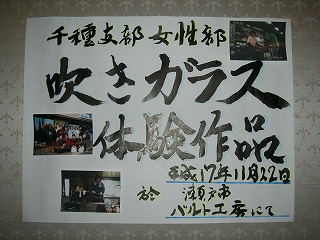 千種支部 女性部
吹きガラス
体験作品
平成17年11月22日
於 瀬戸市
バルト工房にて